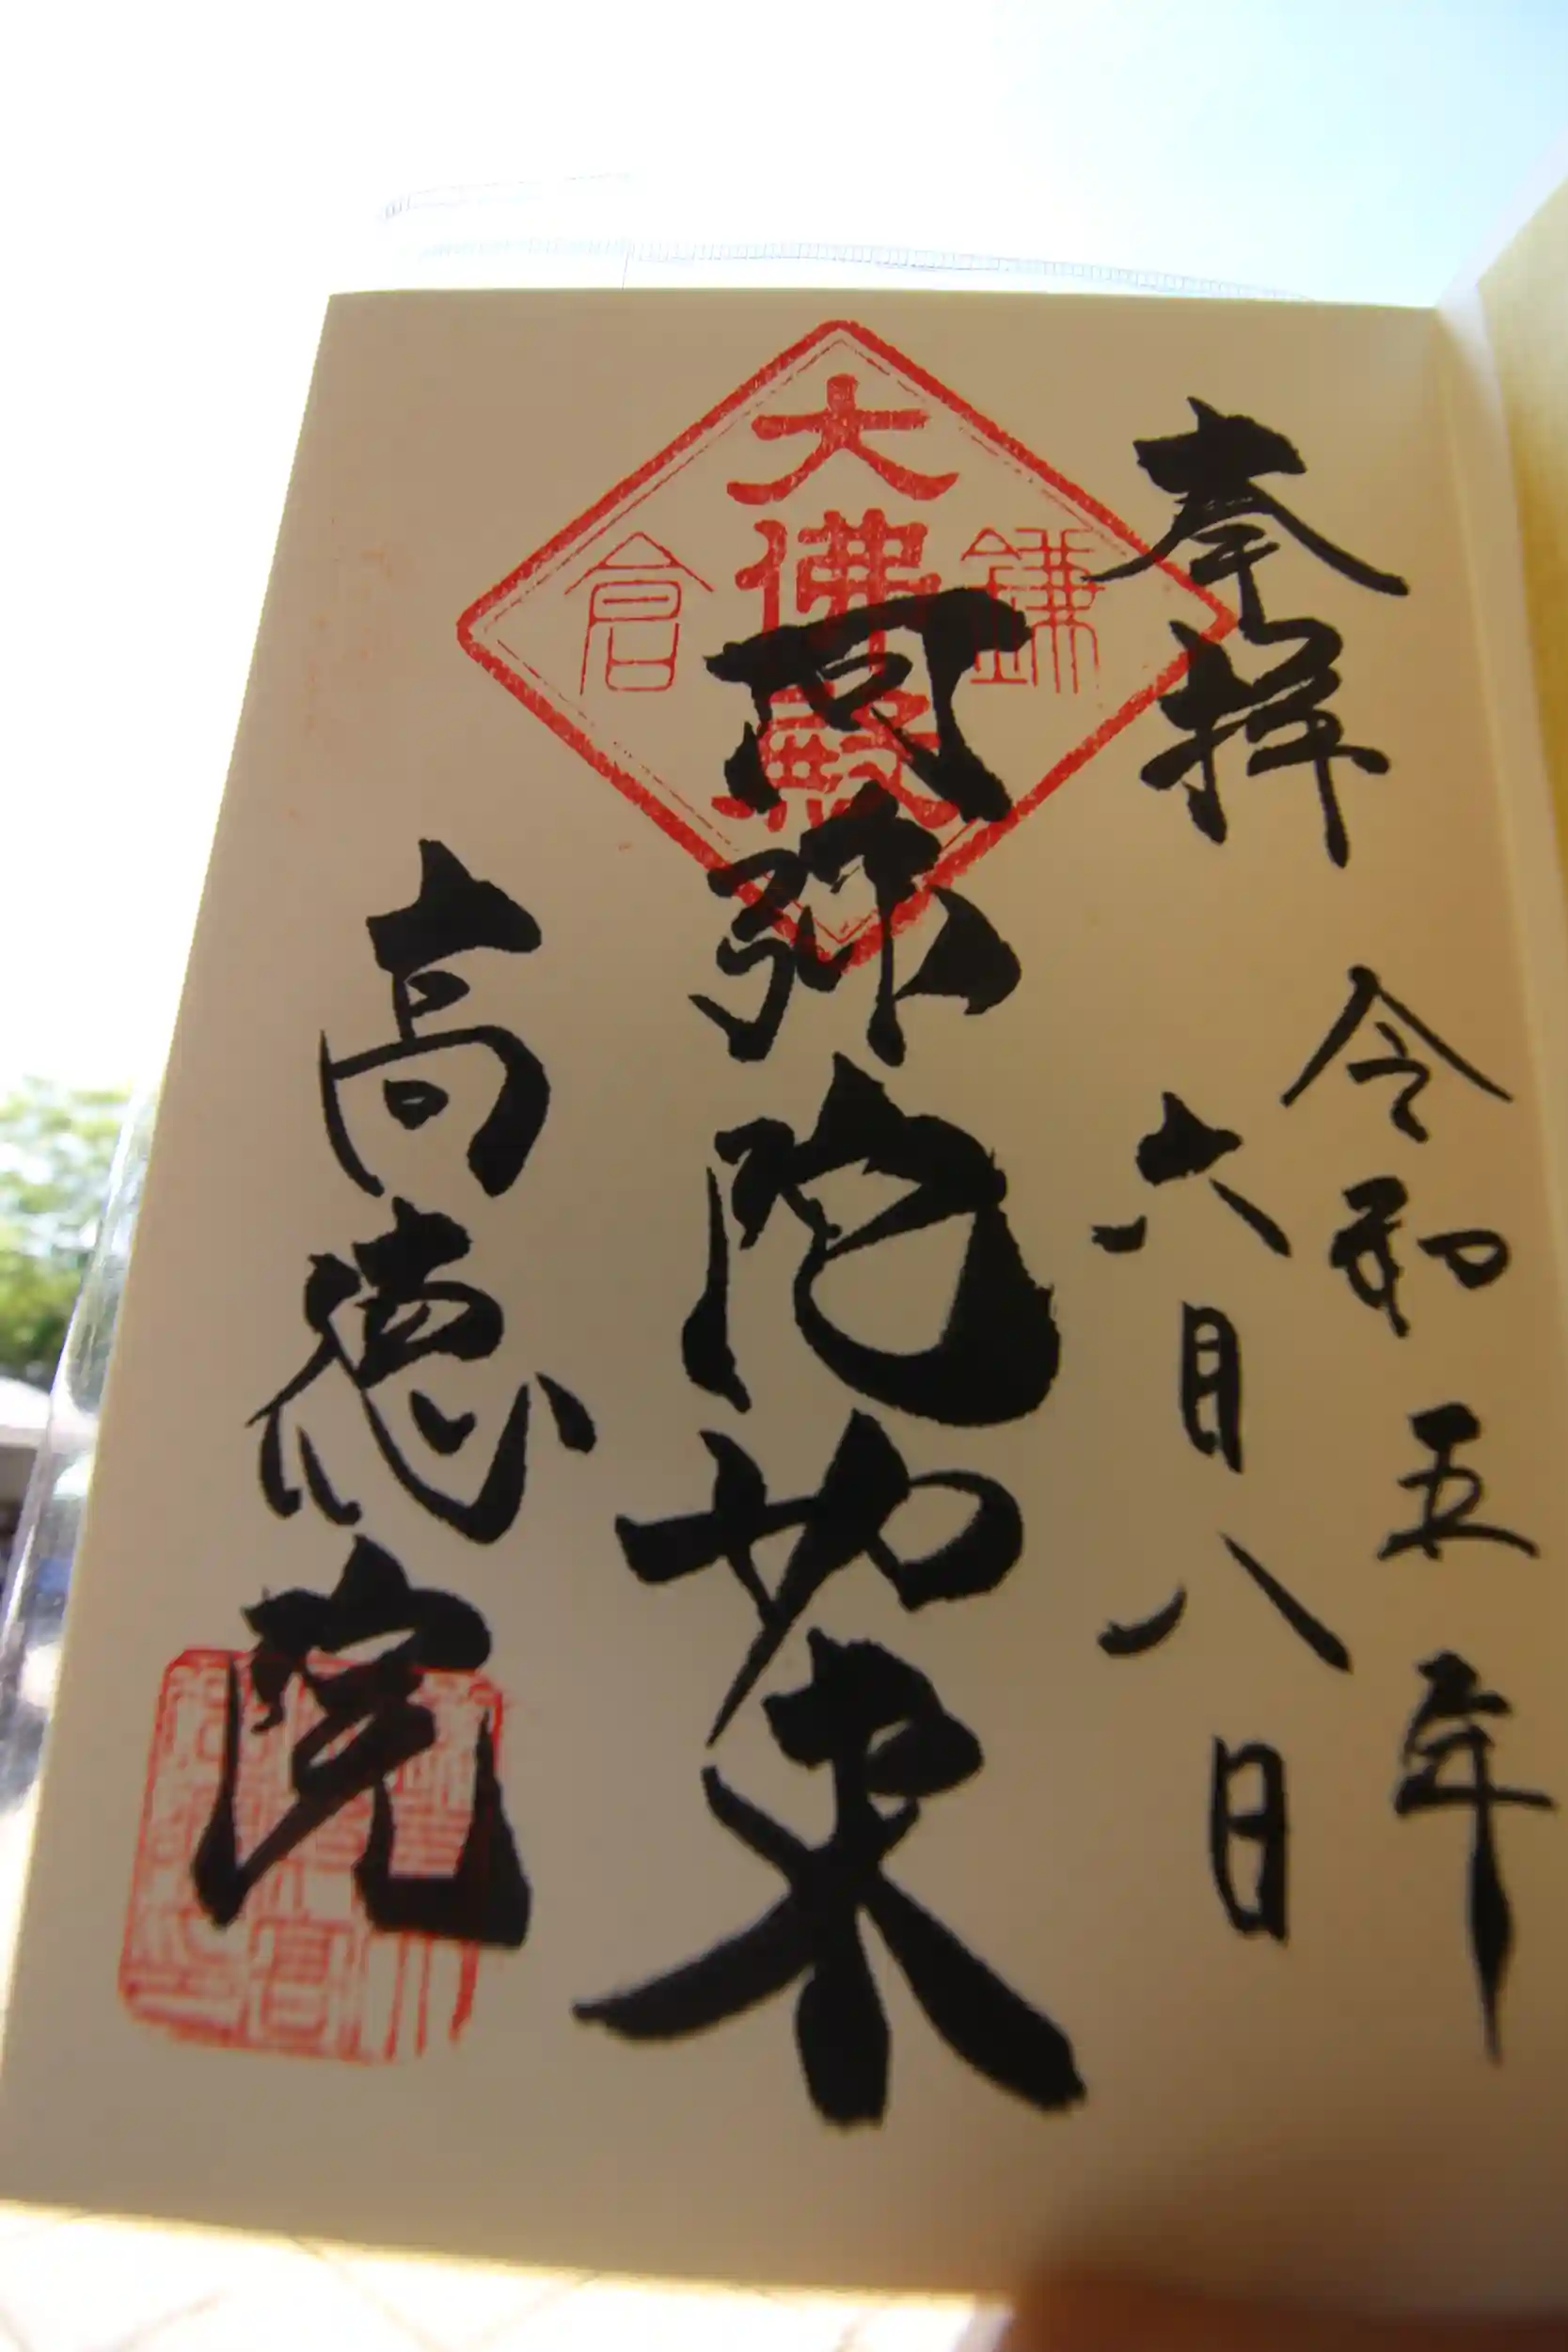 奉拝
令和五年
六月八日
鎌倉
大佛殿
阿弥陀如来
高徳院